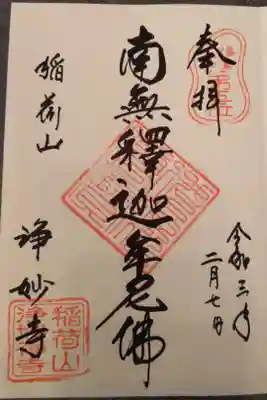 奉拝
令和三年
二月七日
南無釋迦牟尼佛
稲荷山
浄妙寺
稲荷山
浄妙寺